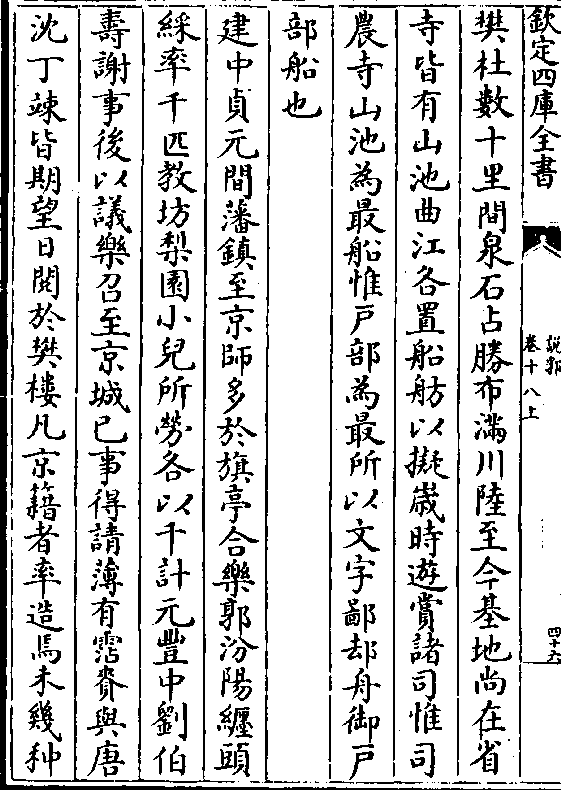 欽定四庫全書
說郛
卷十八上
四十六
樊杜數十里間泉石占勝布滿川陸至今基地尚在省
寺皆有山池曲江各置船舫以擬嵗時遊賞諸司惟司
農寺山池為最船惟戸部為最所以文字鄙却舟御戸
部船也
建中貞元間藩鎮至京師多於旗亭合樂郭汾陽纒頭
綵率千匹教坊梨園小兒所勞各以千計元豐中劉伯
壽謝事後以議樂召至京城已事得請薄有霑賚與唐
沈丁竦皆期望日閲於樊樓凡京籍者率造焉未幾种